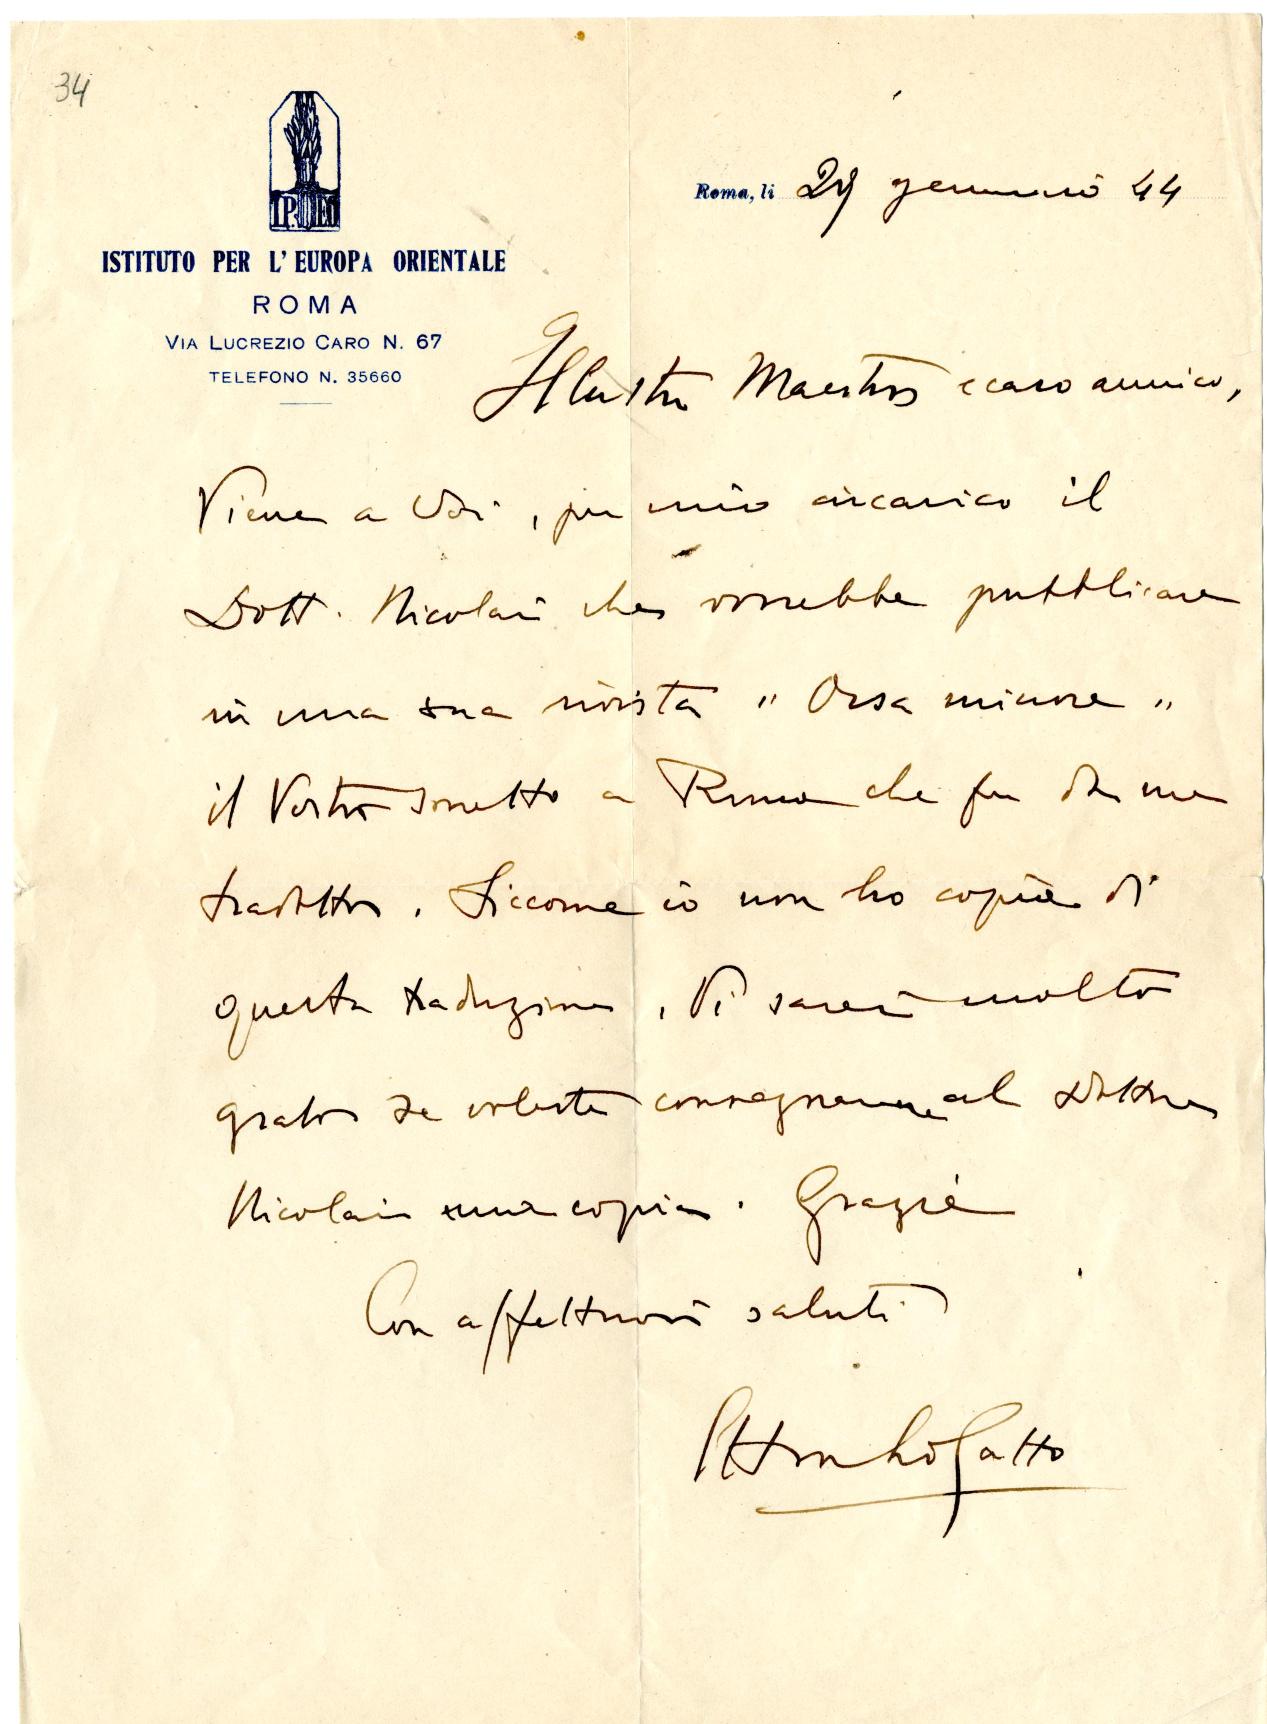 34
I.P.EO
ISTITUTO PER L'EUROPA ORIENTALE
ROMA
VIA LUCREZIO CARO N. 67
TELEFONO N. 35660
Roma, li gennaio 44
Illustre Maestro e caro amico,
Viene a Voi, per mio incarico il
Dott. Nicolai che vorrebbe pubblicare
in una sua rivista "Orsa minore"
il Vostro sonetto a Roma che fu da me
tradotto. Siccome io non ho copia di
questa traduzione, Vi sarei molto
grato se voleste consegnarne al Dottore
Nicolai una copia. Grazie
Con affettuosi saluti
Ettore Lo Gatto